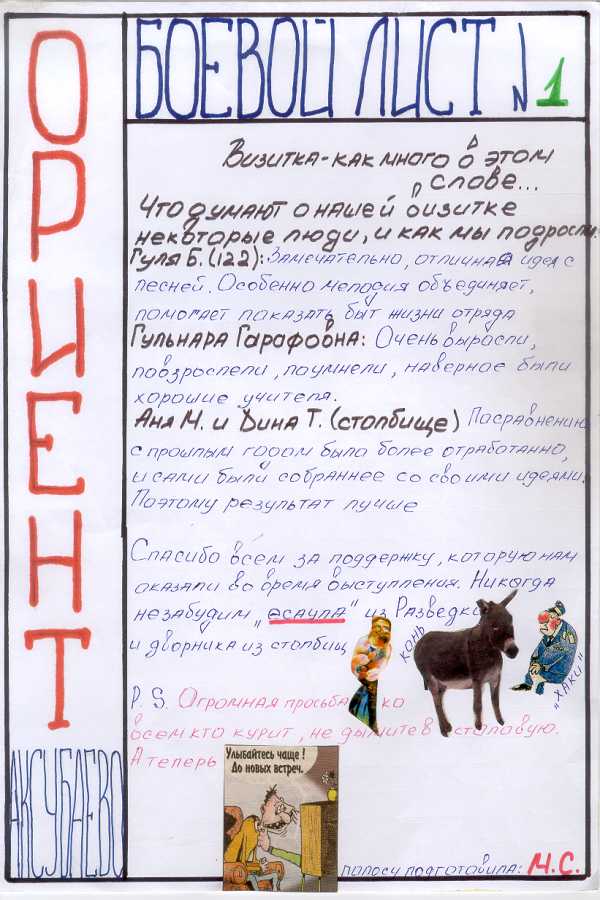 ОРИЕНТ
АКСУБАЕВО
БОЕВОЙ ЛИСТ N 1
Визитка-как много в этом
слове...
Что думают о нашей визитке
некоторые люди, и как мы подросли.
Гуля Б.(122): Замечательно, отличная идея с
песней. Особенно мелодия объединяет,
помогает показать быт жизни отряда
Гульнара Гарафовна: Очень выросли,
повзрослели, поумнели, наверное были
хорошие учителя.
Аня М. и Дина Т. (столбище) Посравнению
с прошлым годом было более отработанно,
и сами были собраннее со своими идеями.
Поэтому результат лучше
Спасибо всем за поддержку, которую нам
оказали во время выступления. Никогда
незабудим „есаула" из Разведки
и дворника из столбищ
конь
„ХАКИ"
P.S. Огромная просьба ко
всем кто курит, не дымите в столовую.
А теперь
Улыбайтесь чаще!
До новых встреч.
полосу подготовила: М.С.